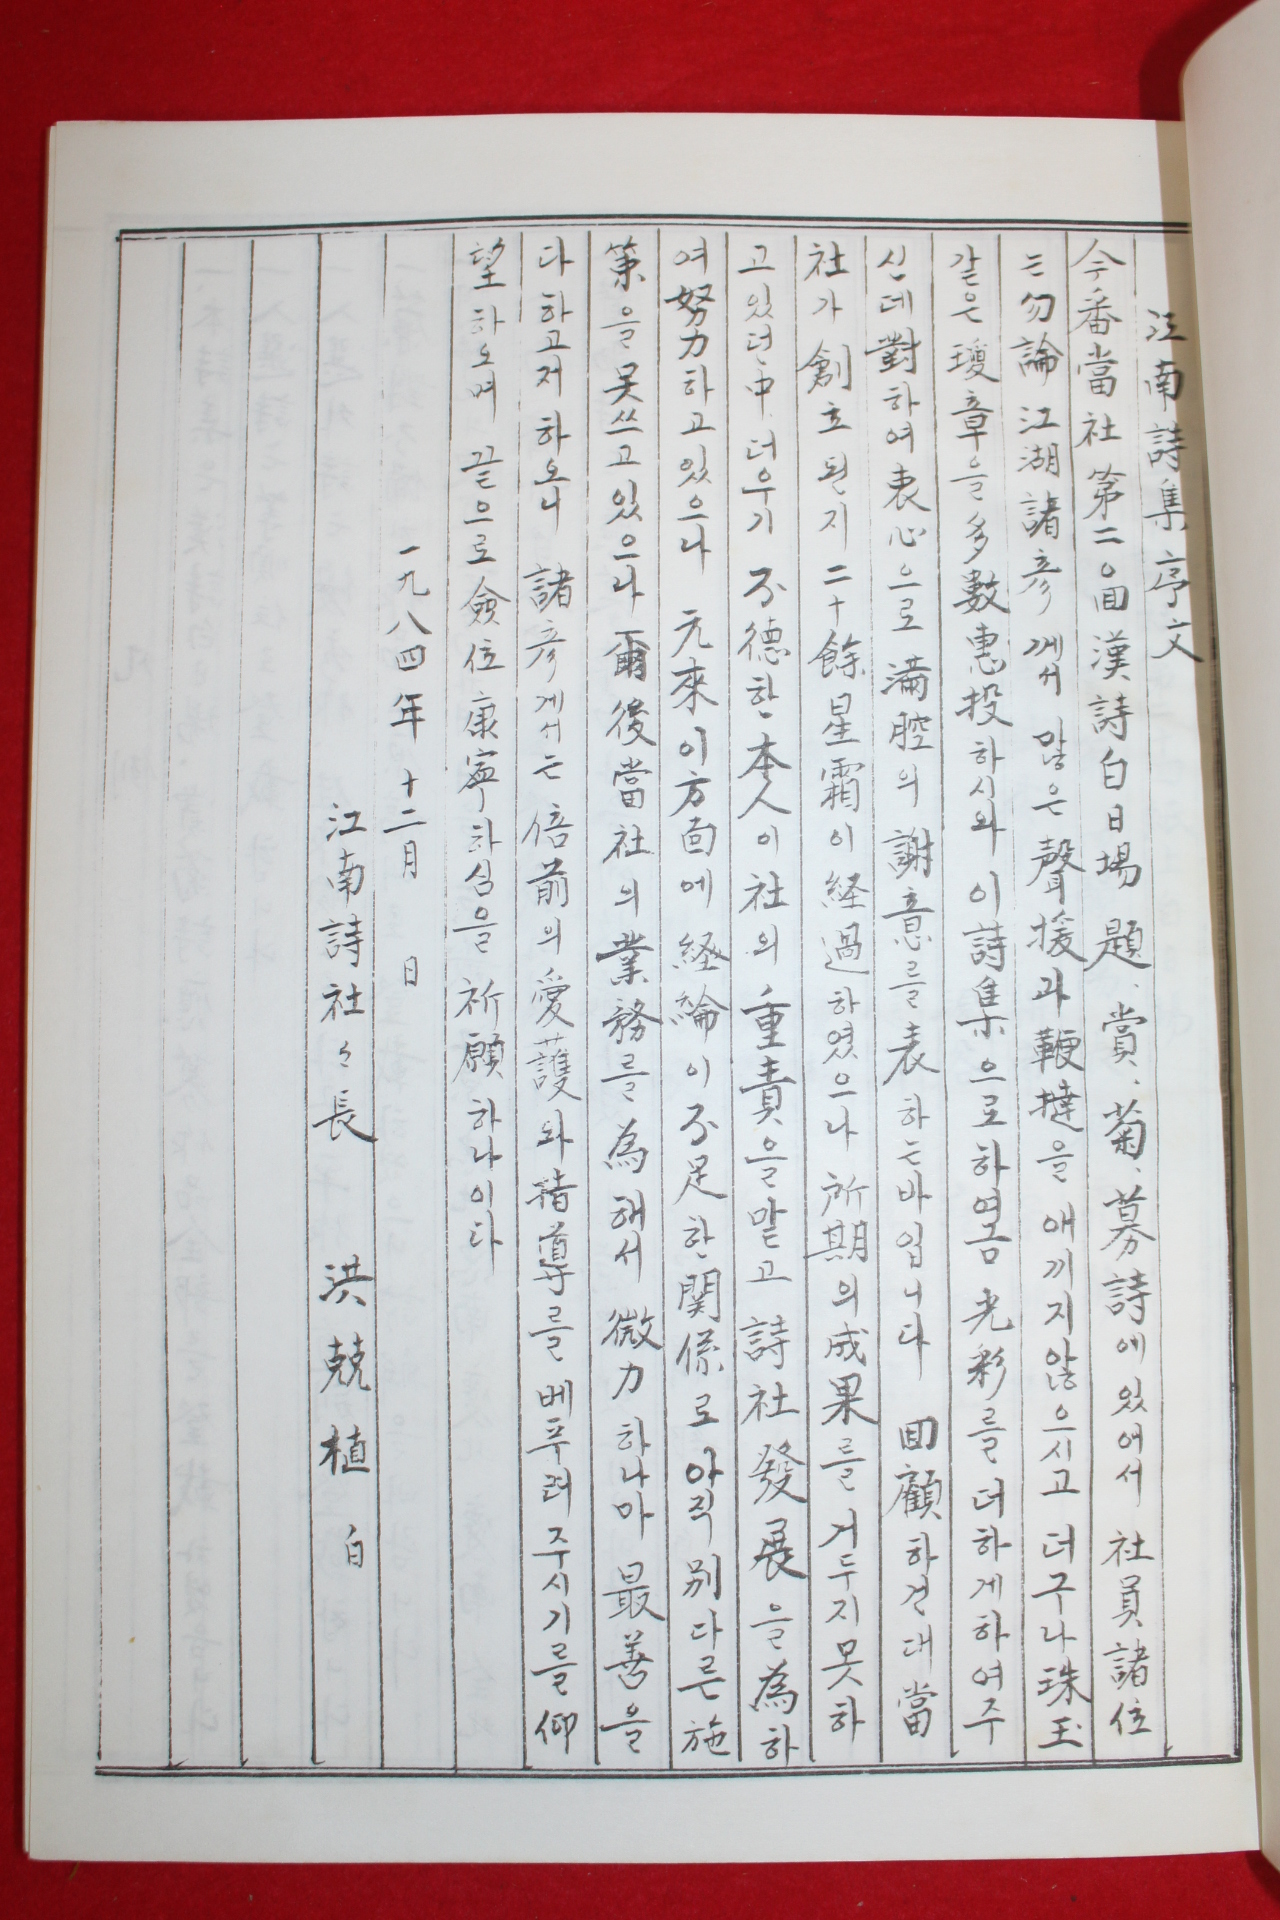 江南詩集序文
今番當社 第二回漢詩白日場 題、賞、菊、募詩에있어서 社員諸位
는勿論 江湖諸彦께서 많은 聲援과鞭撻을 애끼지않으시고 더구나珠玉
같은瓊章을多數惠投하시와 이詩集으로하염금 光彩를더하게하여주
심데對하여衷心으로滿腔의 謝意를表하는바입니다 回顧하건대當
社가創立된지 二十餘星霜이経過하였으나 所期의成果를거두지못하
고있던中 더우기 不德한本人이社의重責을맡고詩社發展을為하
여努力하고있으나 元來이方面에経綸이不足한関係로아직別다른施
策을못쓰고있으나爾後當社의業務를為해서 微力하나마最善을
다하고저하오니 諸彦게서는 倍前의愛護와指導를베푸려주시기를仰
望하오며 끝으로僉位康寧하심을 祈願하나이다
一九八四年 十二月 日
江南詩社々長 洪兢植 白